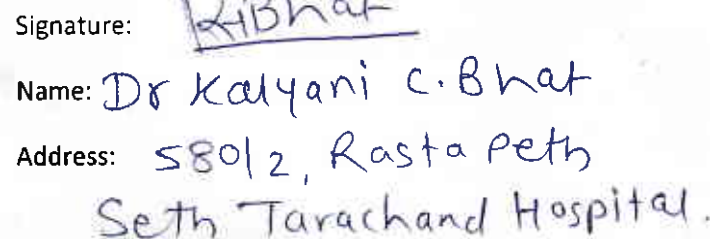 Signature: KBhat
Name: Dr Kalyani C. Bhat
Address: 580/2, Rasta Peth
Seth Tarachand Hospital.